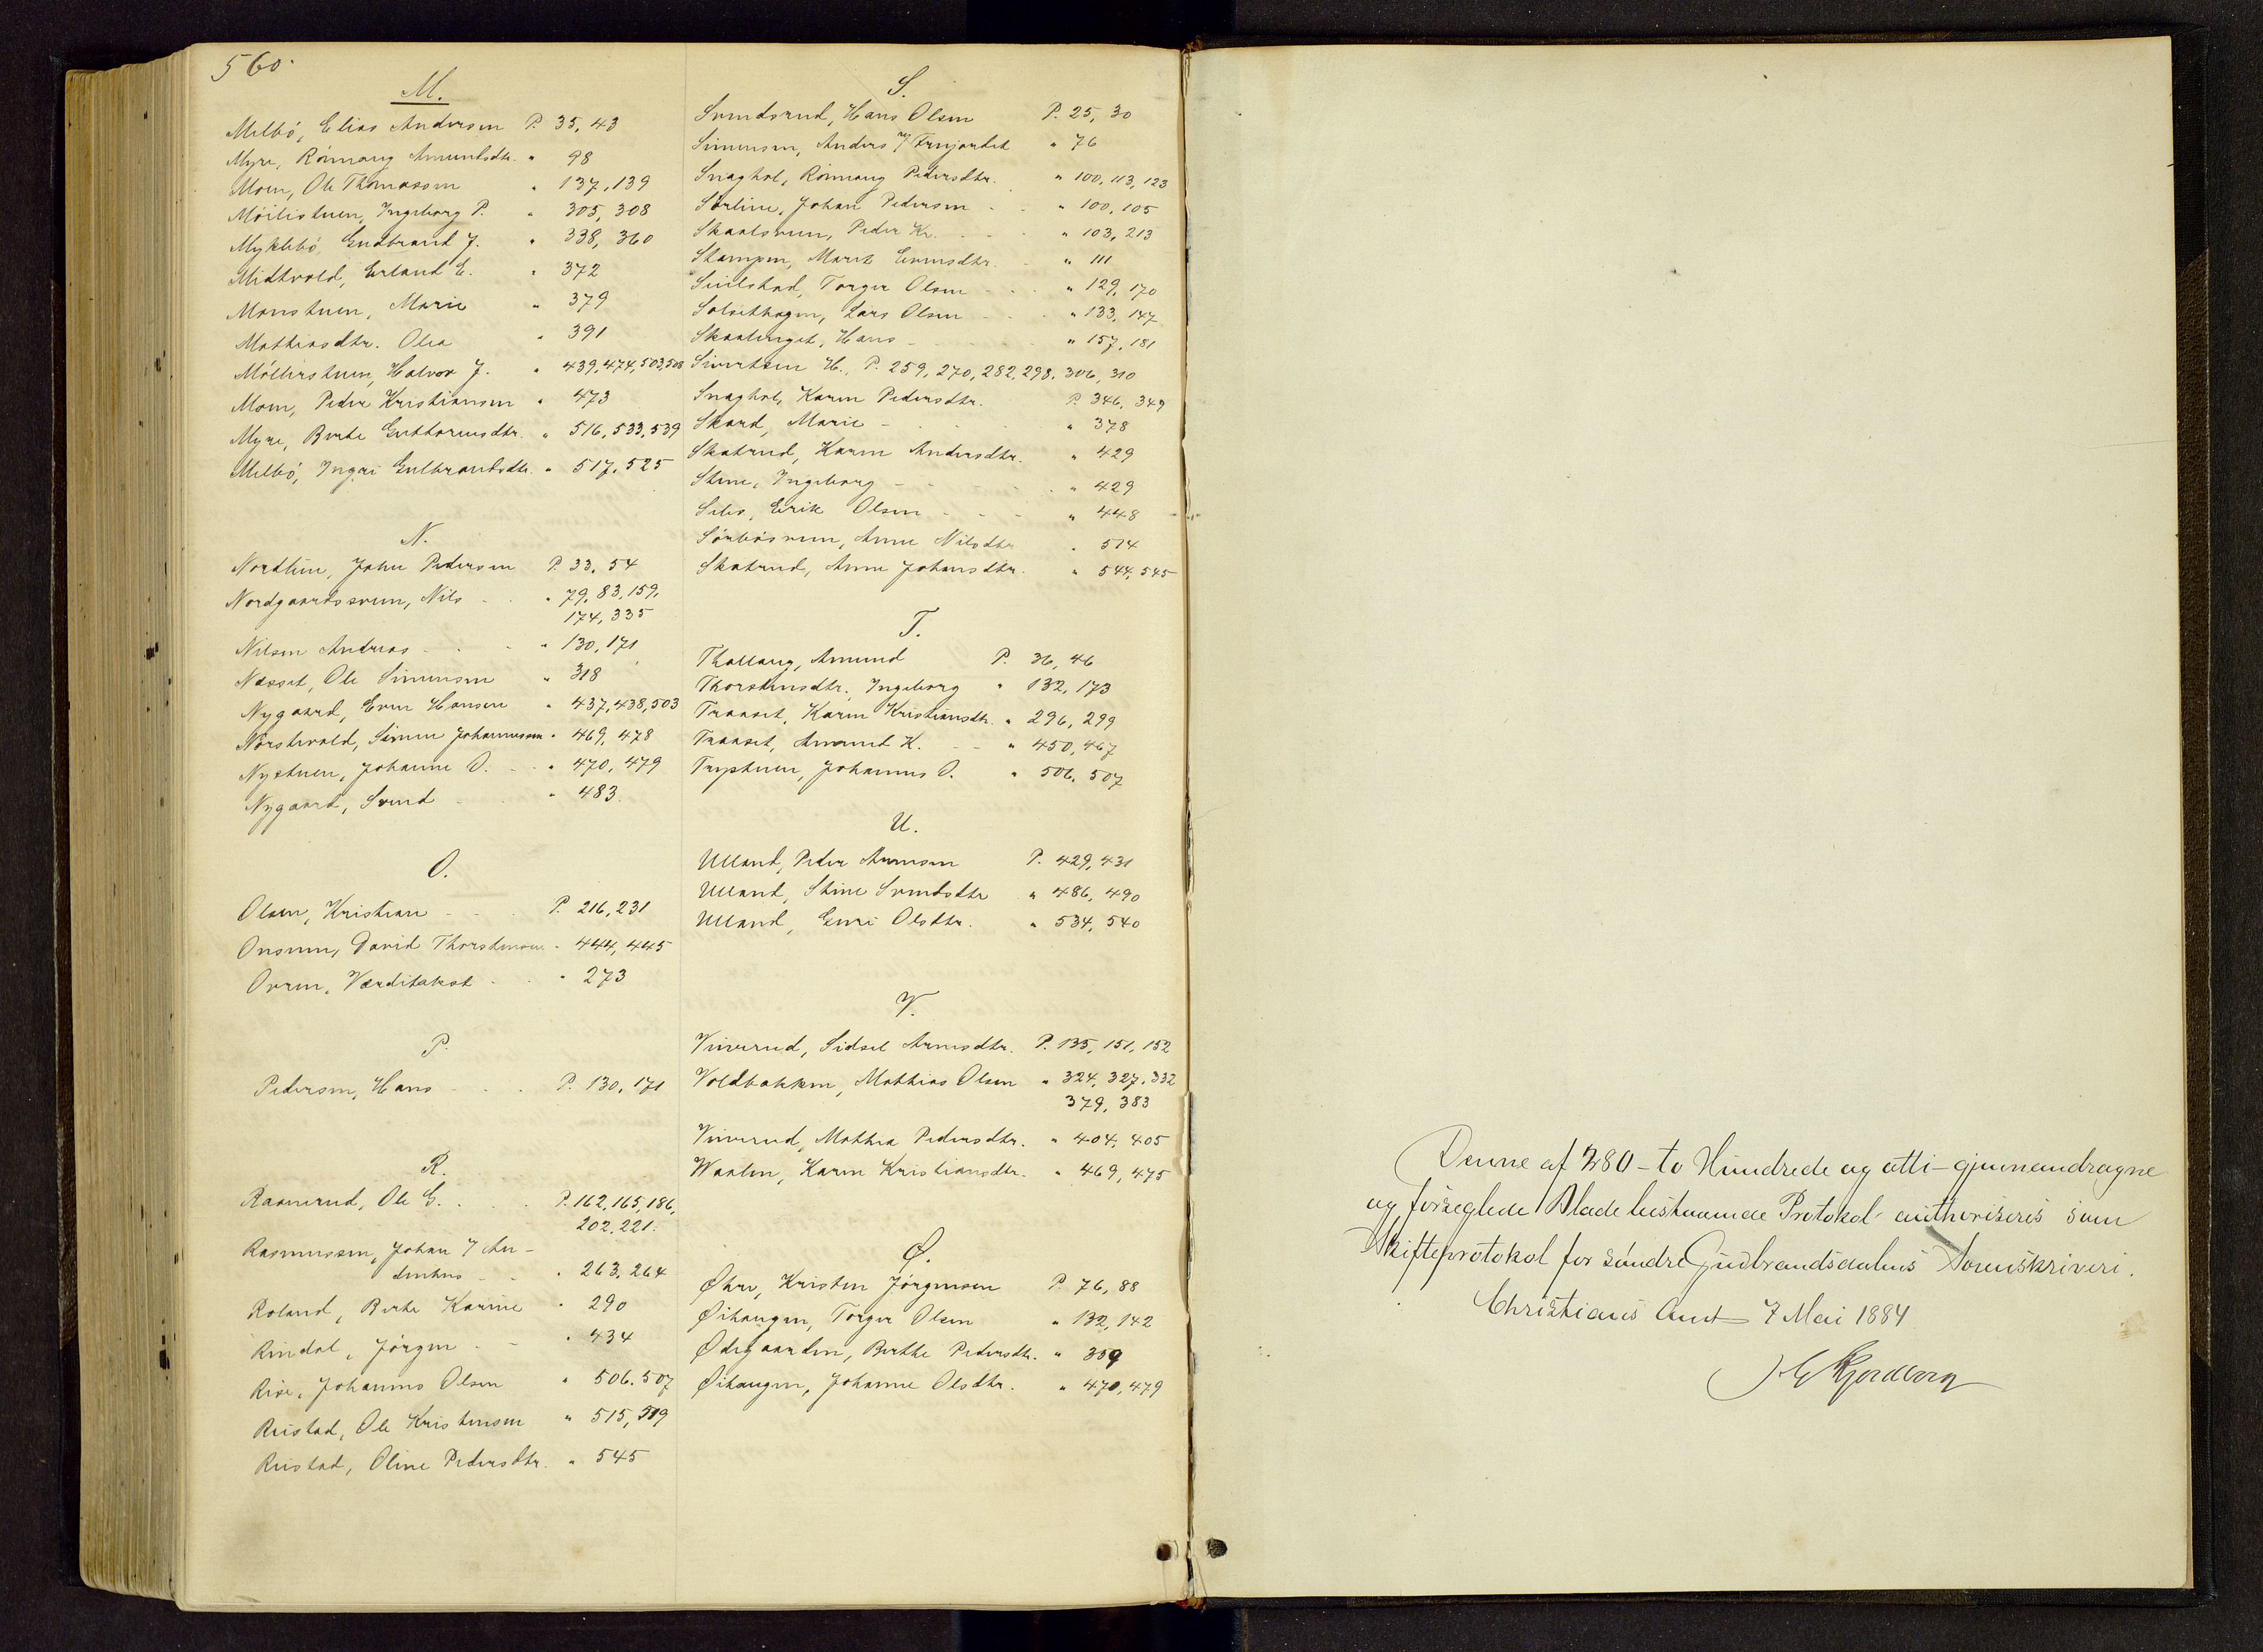 560.
M.
Melbö, Elias Andersen P. 35, 43
Myre, Rönnaug Amundsdtr. " 98
Moen, Ole Thomassen " 137, 139
Möilistuen, Ingeborg P. " 305, 308
Myklebö Gudbrand J. " 338, 360
Midtvold, Erland E. " 372
Monstuen, Marie " 379
Mathiasdtr. Olea " 391
Möllerstuen, Halvor J. " 439, 474, 503, 508
Moen, Peder Kristiansen " 473
Myre, Berte Guttormsdtr. " 516, 533, 539
Melbö, Ingri Gulbrandsdtr. " 517, 525
N.
Nordlien, Johan Pedersen P. 33, 54
Nordgaardssveen, Nils " 79, 83, 159,
174, 335
Nilsen Andreas " 130, 171
Næsset, Ole Simensen " 318
Nygaard, Even Hansen " 437, 438, 503
Nörstevold, Simen Johannessen " 469, 478
Nystuen, Johanne O. " 470, 479
Nygaard, Svend " 483.
O.
Olsen, Kristian P. 216, 231
Onsum, David Thorstensen " 444, 445
Ovren, Værditakst " 273
P.
Pedersen, Hans P. 130, 171
R.
Raanerud, Ole G. P. 162, 165, 186,
202, 221.
Rasmussen, Johan
" 263, 264
Roland, Berte Karine " 290
Rindal, Jörgen " 434
Rise, Johannes Olsen " 506, 507
Ristad, Ole Kristensen " 515, 519
Ristad, Oline Pedersdtr. " 545
S.
Svendsrud, Hans Olsen P. 25, 30
Simensen, Anders " 76
Snaghol, Rönnaug Pedersdtr. " 100, 113, 123
Sörline, Johan Pedersen " 100, 105
Skaalsveen, Peder Kr. " 103, 213
Stampen, Marit Evensdtr. " 111
Siilstad, Torger Olsen " 129, 170
Solsethagen, Lars Olsen " 133, 147
Skaalenget, Hans " 157, 181
Sivertsen H., P. 259, 270, 282, 298, 306, 310
Snaghol, Karen Pedersdtr. P. 346, 349
Skard, Marie " 378
Skatrud, Karen Andersdtr. " 429
Steine, Ingeborg " 429
Erik Olsen " 448
Sörbösveen, Anne Nilsdtr " 514
Skatrud, Anne Johansdtr. " 544, 545
T.
Thallaug, Amund P. 36, 46
Thorstensdtr., Ingeborg " 132, 173
Traaset, Karen Kristiansdtr. " 296, 299
Traaset, Amund K. " 450, 467
Trystuen, Johannes O. " 506, 507
U.
Ulland, Peder Arnesen P. 429, 431
Ulland, Stine Svendsdtr " 486, 490
Ulland, Guri Olsdtr. " 534, 540
V.
Viverud, Sidsel Arnesdtr. P. 135, 151, 152
Voldbakken, Mathias Olsen " 324, 327, 332
379, 383
Viverud, Mathea Pedersdtr. " 404, 405
Waalen, Karen Kristiansdtr. " 469, 475
Ø.
Øhre, Kristen Jörgensen P. 76, 88
Øihaugen, Torger Olsen " 132, 142
Ødegaarden, Berthe Pedersdtr. " 359
Øihaugen, Johanne Olsdtr. " 470, 479
Denne af 280 - to Hundrede og otti - gjennemdragne
og forseglede Blade bestaaende Protokol authoriseres som
Skifteprotokol for söndre Gudbrandsdalens Sorenskriveri.
Christians Amt 7 Mai 1884